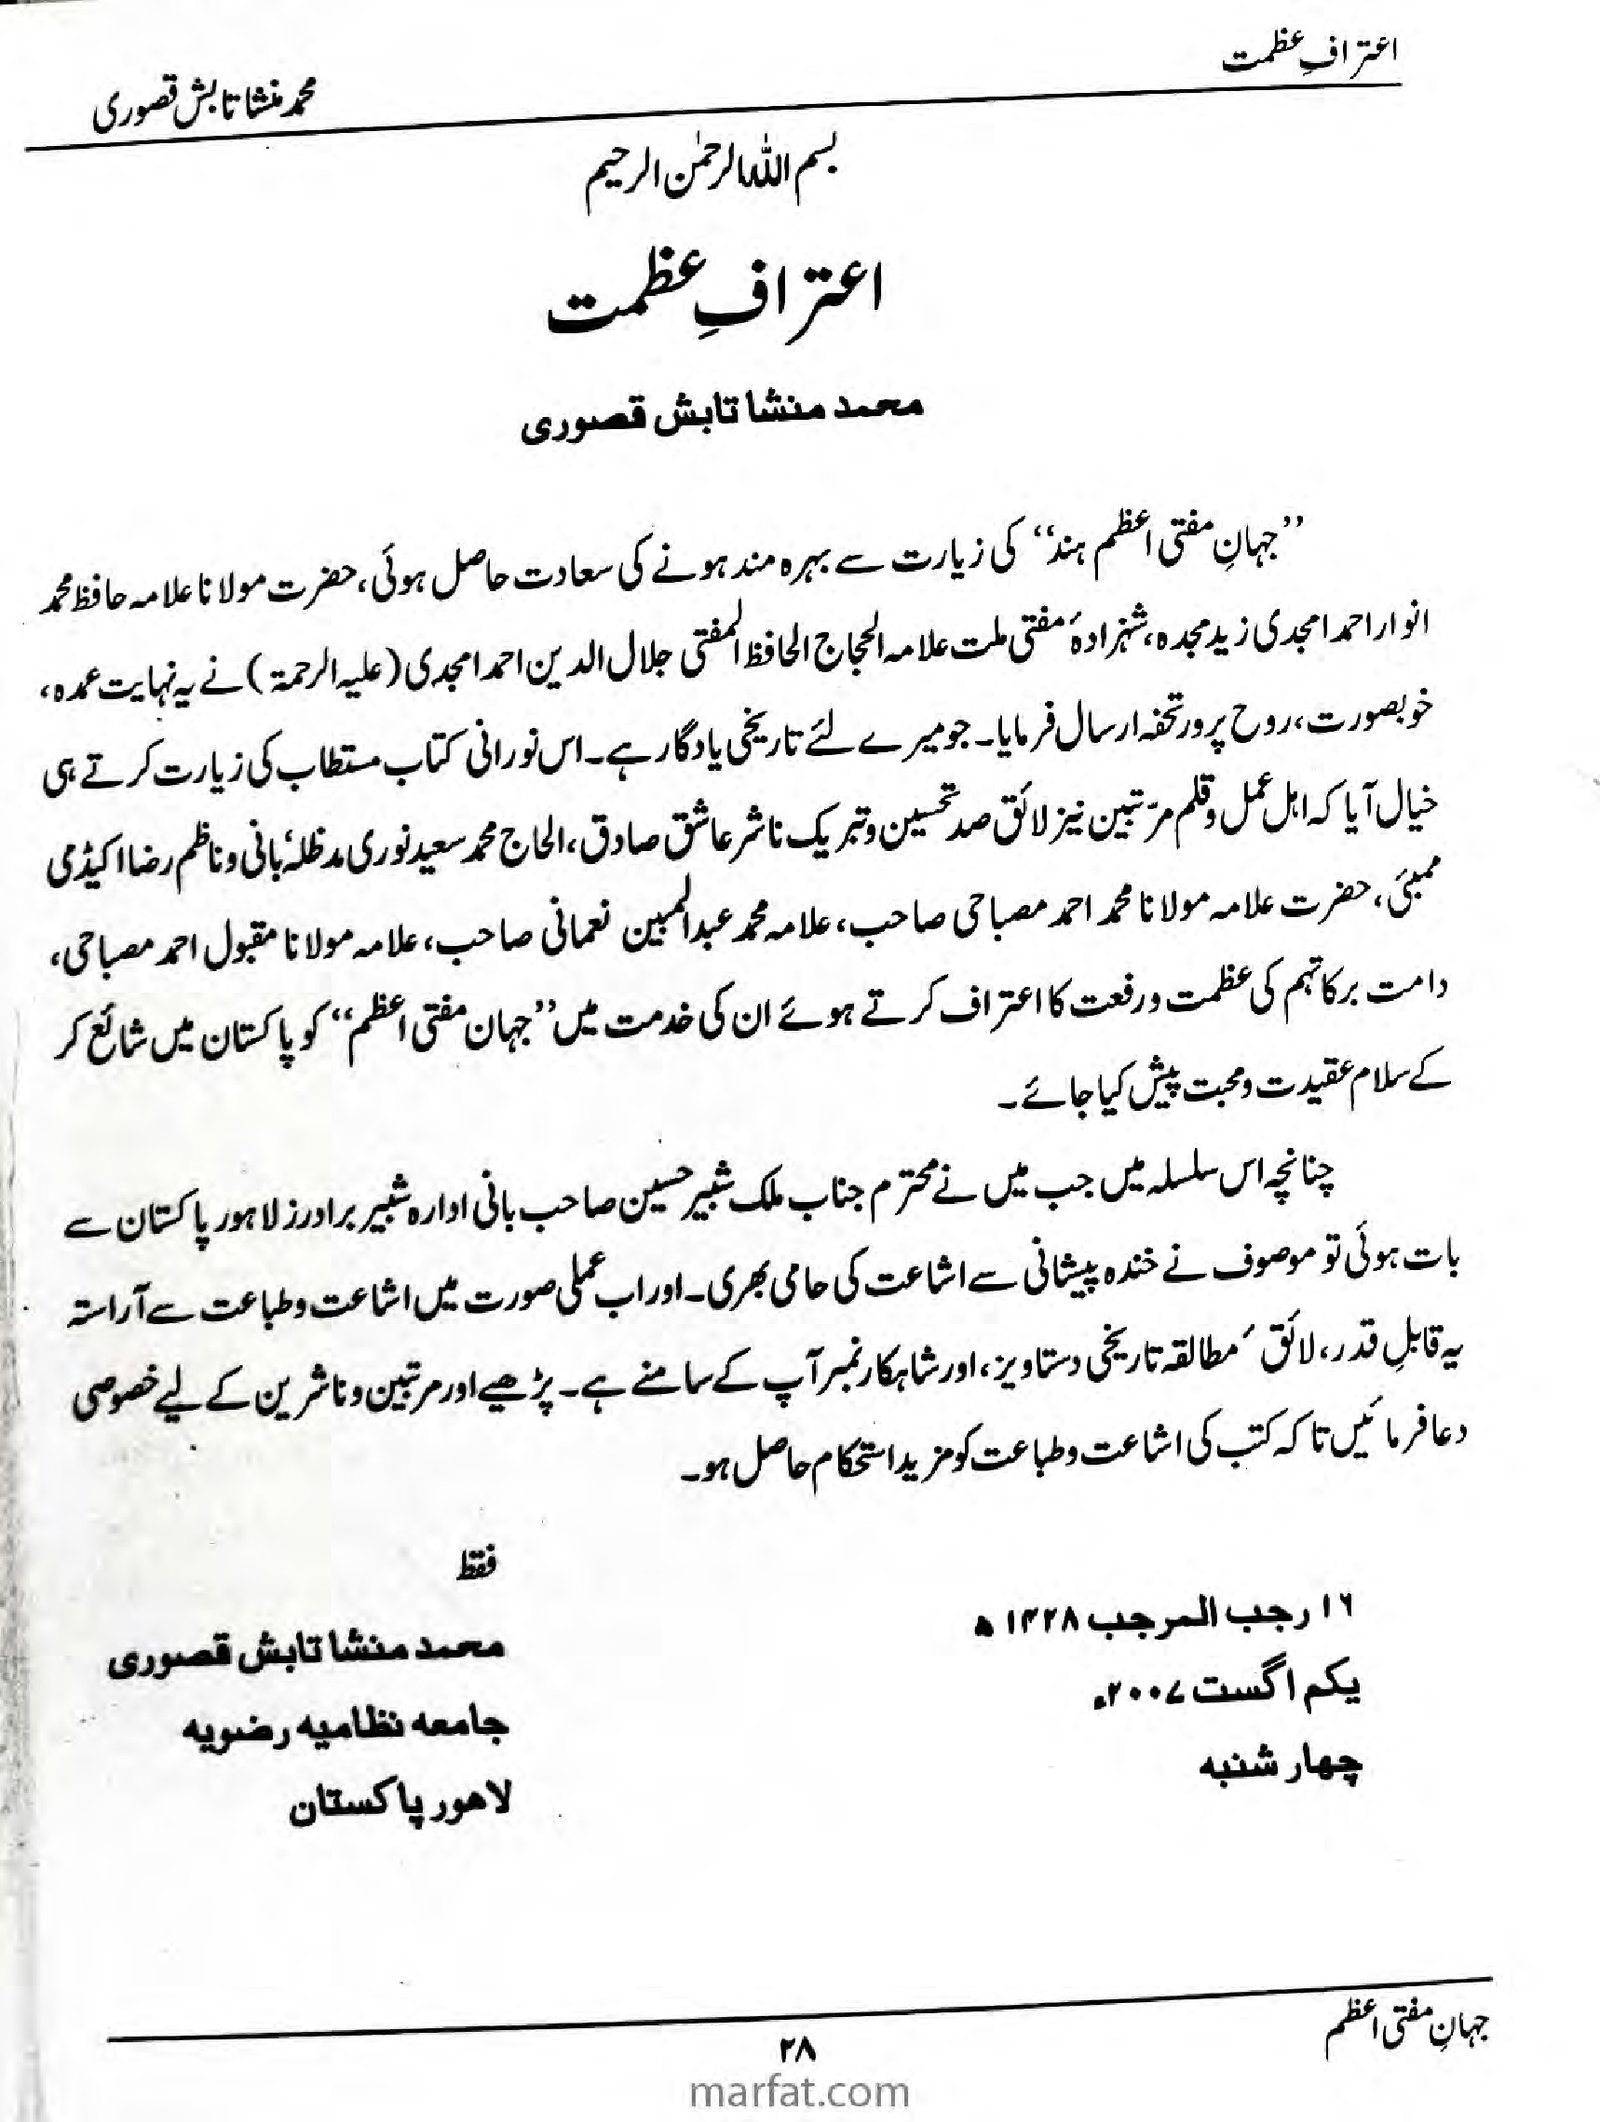 اعترافِ عظمت
محمد منشا تابش قصوری
بسم اللہ الرحمٰن الرحیم
اعترافِ عظمت
محمد منشا تابش قصوری
’’جہانِ مفتی اعظم ہند‘‘ کی زیارت سے بہرہ مند ہونے کی سعادت حاصل ہوئی، حضرت مولانا علامہ حافظ محمد
انوار احمد امجدی زید مجدہ، شہزادۂ مفتی ملت علامہ الحجاج الحافظ المفتی جلال الدین احمد امجدی (علیہ الرحمۃ) نے یہ نہایت عمدہ،
خوبصورت، روح پرور تحفہ ارسال فرمایا۔ جو میرے لئے تاریخی یادگار ہے۔ اس نورانی کتاب مستطاب کی زیارت کرتے ہی
خیال آیا کہ اہل عمل و قلم مرّتبین نیز لائق صد تحسین و تبریک ناشر عاشق صادق، الحاج محمد سعید نوری مدظلہٗ بانی و ناظم رضا اکیڈمی
ممبئی، حضرت علامہ مولانا محمد احمد مصباحی صاحب، علامہ محمد عبدالمبین نعمانی صاحب، علامہ مولانا مقبول احمد مصباحی،
دامت برکاتہم کی عظمت و رفعت کا اعتراف کرتے ہوئے ان کی خدمت میں ’’جہان مفتی اعظم‘‘ کو پاکستان میں شائع کر
کے سلام عقیدت و محبت پیش کیا جائے۔
چنانچہ اس سلسلہ میں جب میں نے محترم جناب ملک شبیر حسین صاحب بانی ادارہ شبیر برادرز لاہور پاکستان سے
بات ہوئی تو موصوف نے خندہ پیشانی سے اشاعت کی حامی بھری۔ اور اب عملی صورت میں اشاعت و طباعت سے آراستہ
یہ قابلِ قدر، لائق ٔ مطالقہ تاریخی دستاویز، اور شاہکار نمبر آپ کے سامنے ہے۔ پڑھیے اور مرتبین و ناشرین کے لیے خصوصی
دعا فرمائیں تاکہ کتب کی اشاعت و طباعت کو مزید استحکام حاصل ہو۔
فقط
۱۶ رجب المرجب ۱۴۲۸ ھ
محمد منشا تابش قصوری
یکم اگست ۲۰۰۷ء
جامعہ نظامیہ رضویہ
چهار شنبہ
لاهور پاکستان
جہانِ مفتی اعظم
۲۸
marfat.com